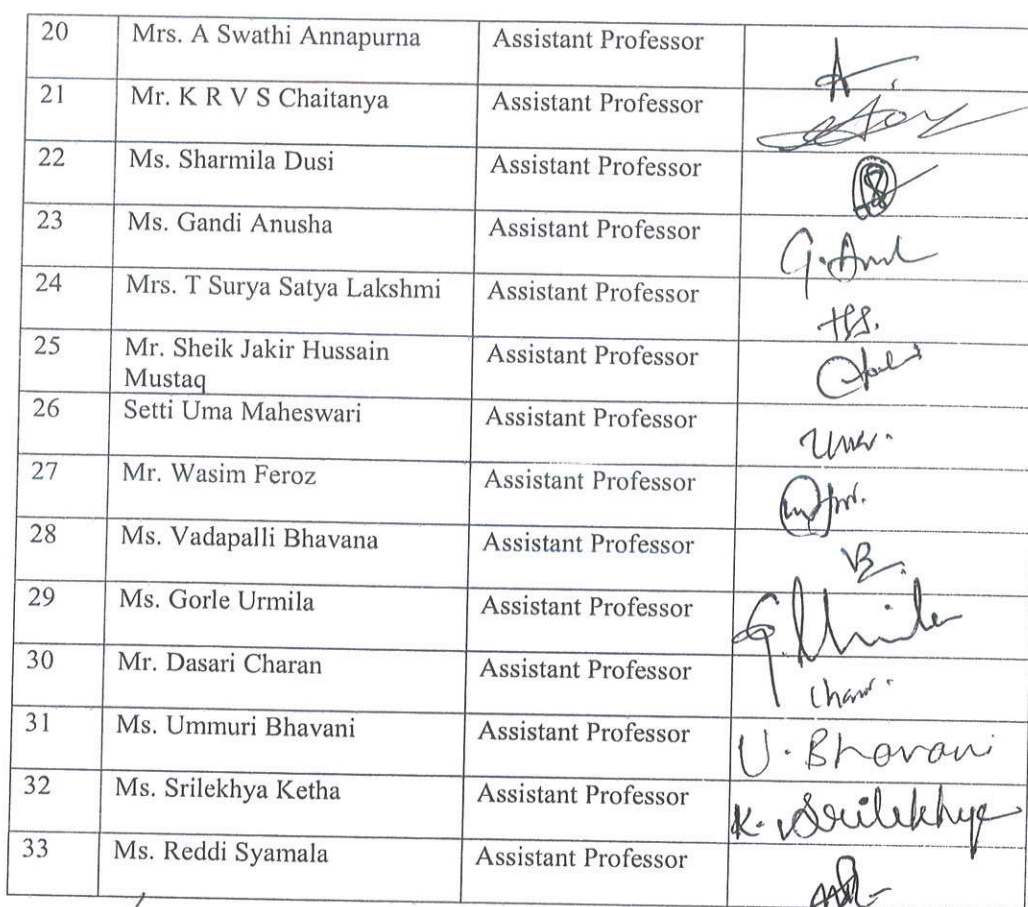 20 Mrs. A Swathi Annapurna Assistant Professor A
21 Mr. K R V S Chaitanya Assistant Professor
22 Ms. Sharmila Dusi Assistant Professor
23 Ms. Gandi Anusha Assistant Professor
24 Mrs. T Surya Satya Lakshmi Assistant Professor
25 Mr. Sheik Jakir Hussain
Mustaq Assistant Professor
26 Setti Uma Maheswari Assistant Professor
27 Mr. Wasim Feroz Assistant Professor
28 Ms. Vadapalli Bhavana Assistant Professor
29 Ms. Gorle Urmila Assistant Professor
30 Mr. Dasari Charan Assistant Professor
31 Ms. Ummuri Bhavani Assistant Professor U. Bhavani
32 Ms. Srilekhya Ketha Assistant Professor K. Srilekhya
33 Ms. Reddi Syamala Assistant Professor